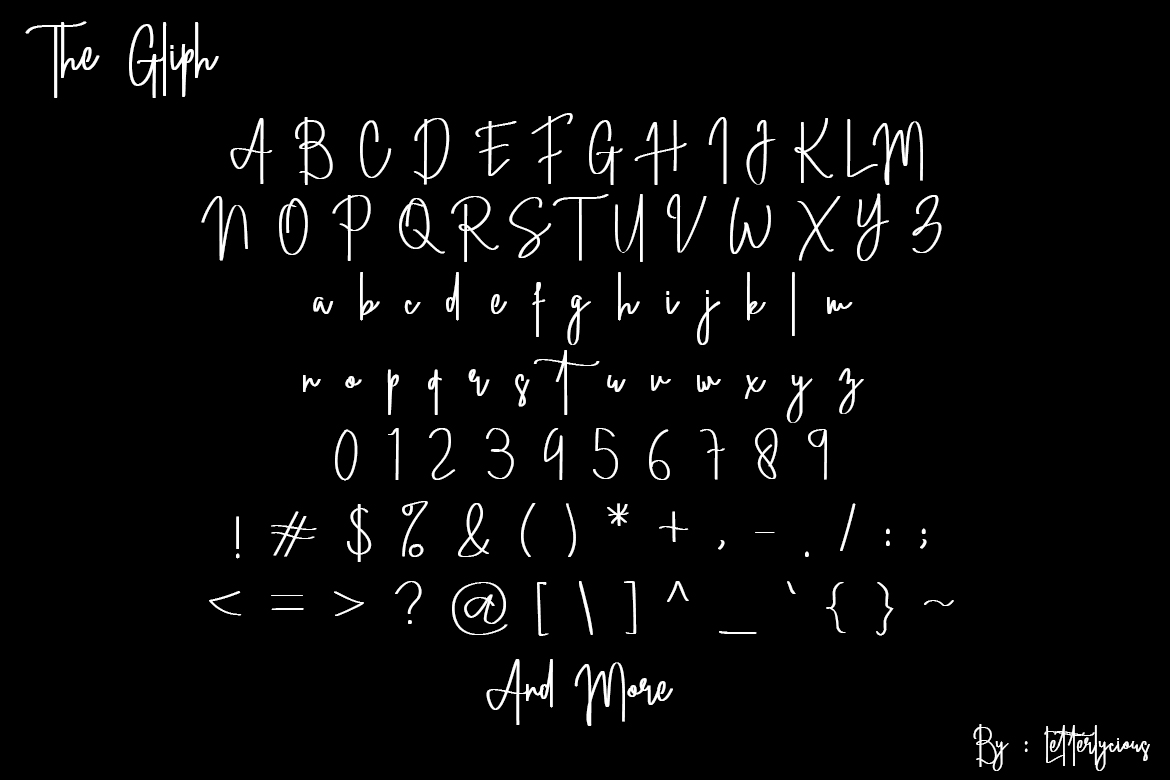 The Gliph
A B C D E F G H I J K L M
N O P Q R S T U V W X Y Z
a b c d e f g h i j k l m
n o p q r s t u v w x y z
0 1 2 3 4 5 6 7 8 9
! # $ % & ( ) * + , - . / : ;
< = > ? @ [ \ ] ^ _ ` { } ~
And More
By : Letterlycious